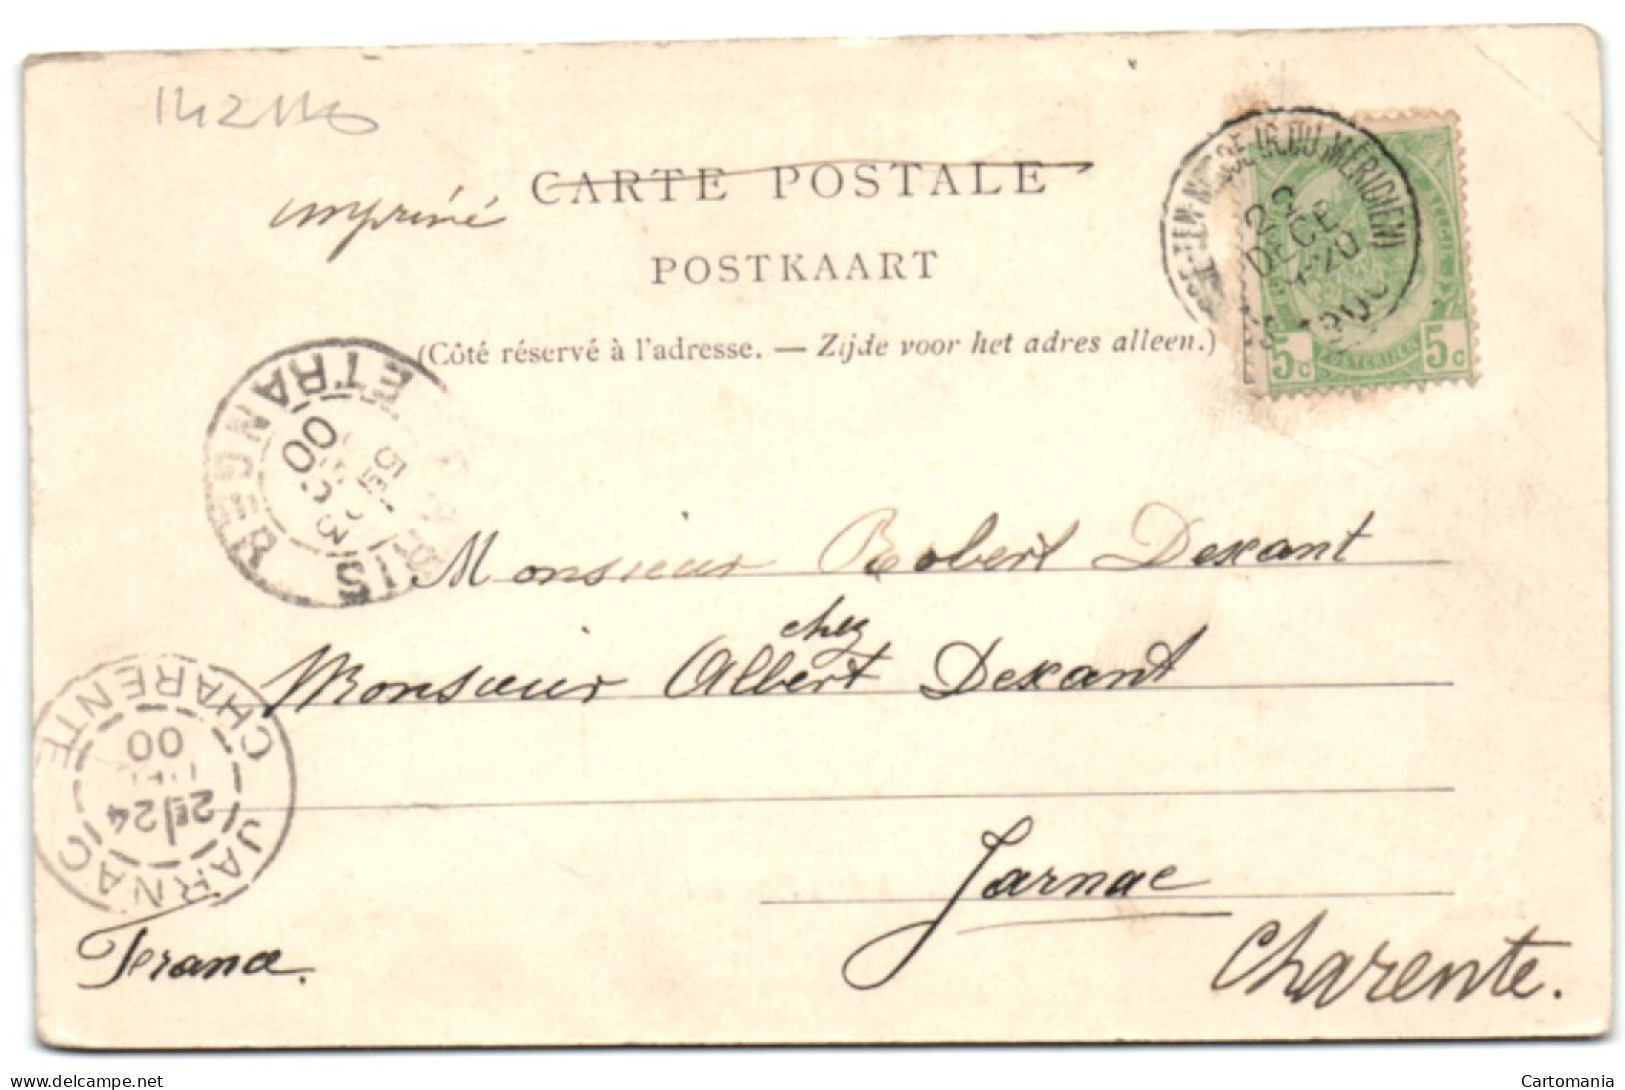 142110
CARTE POSTALE
imprimé
POSTKAART
(Côté réservé à l'adresse. — Zijde voor het adres alleen.)
DU MÉRIDIEN)
22
DECE
1900
5c 5c
ETRANGER
00
Monsieur Robert Dexant
chez
Monsieur Albert Dexant
JARNAC
CHARENTE
2E/24
00
Jarnac
Charente.
France.
delcampe.net
Cartomania